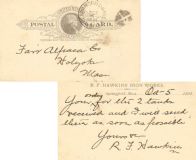 POSTAL CARD.
Farr Alpaca Co
Holyoke
Mass
R. F. HAWKINS IRON WORKS,
Springfield, Mass., Oct 5
Your order for the 2 tanks
received and I will send
them as soon as possible
Yours &c
R. F. Hawkins